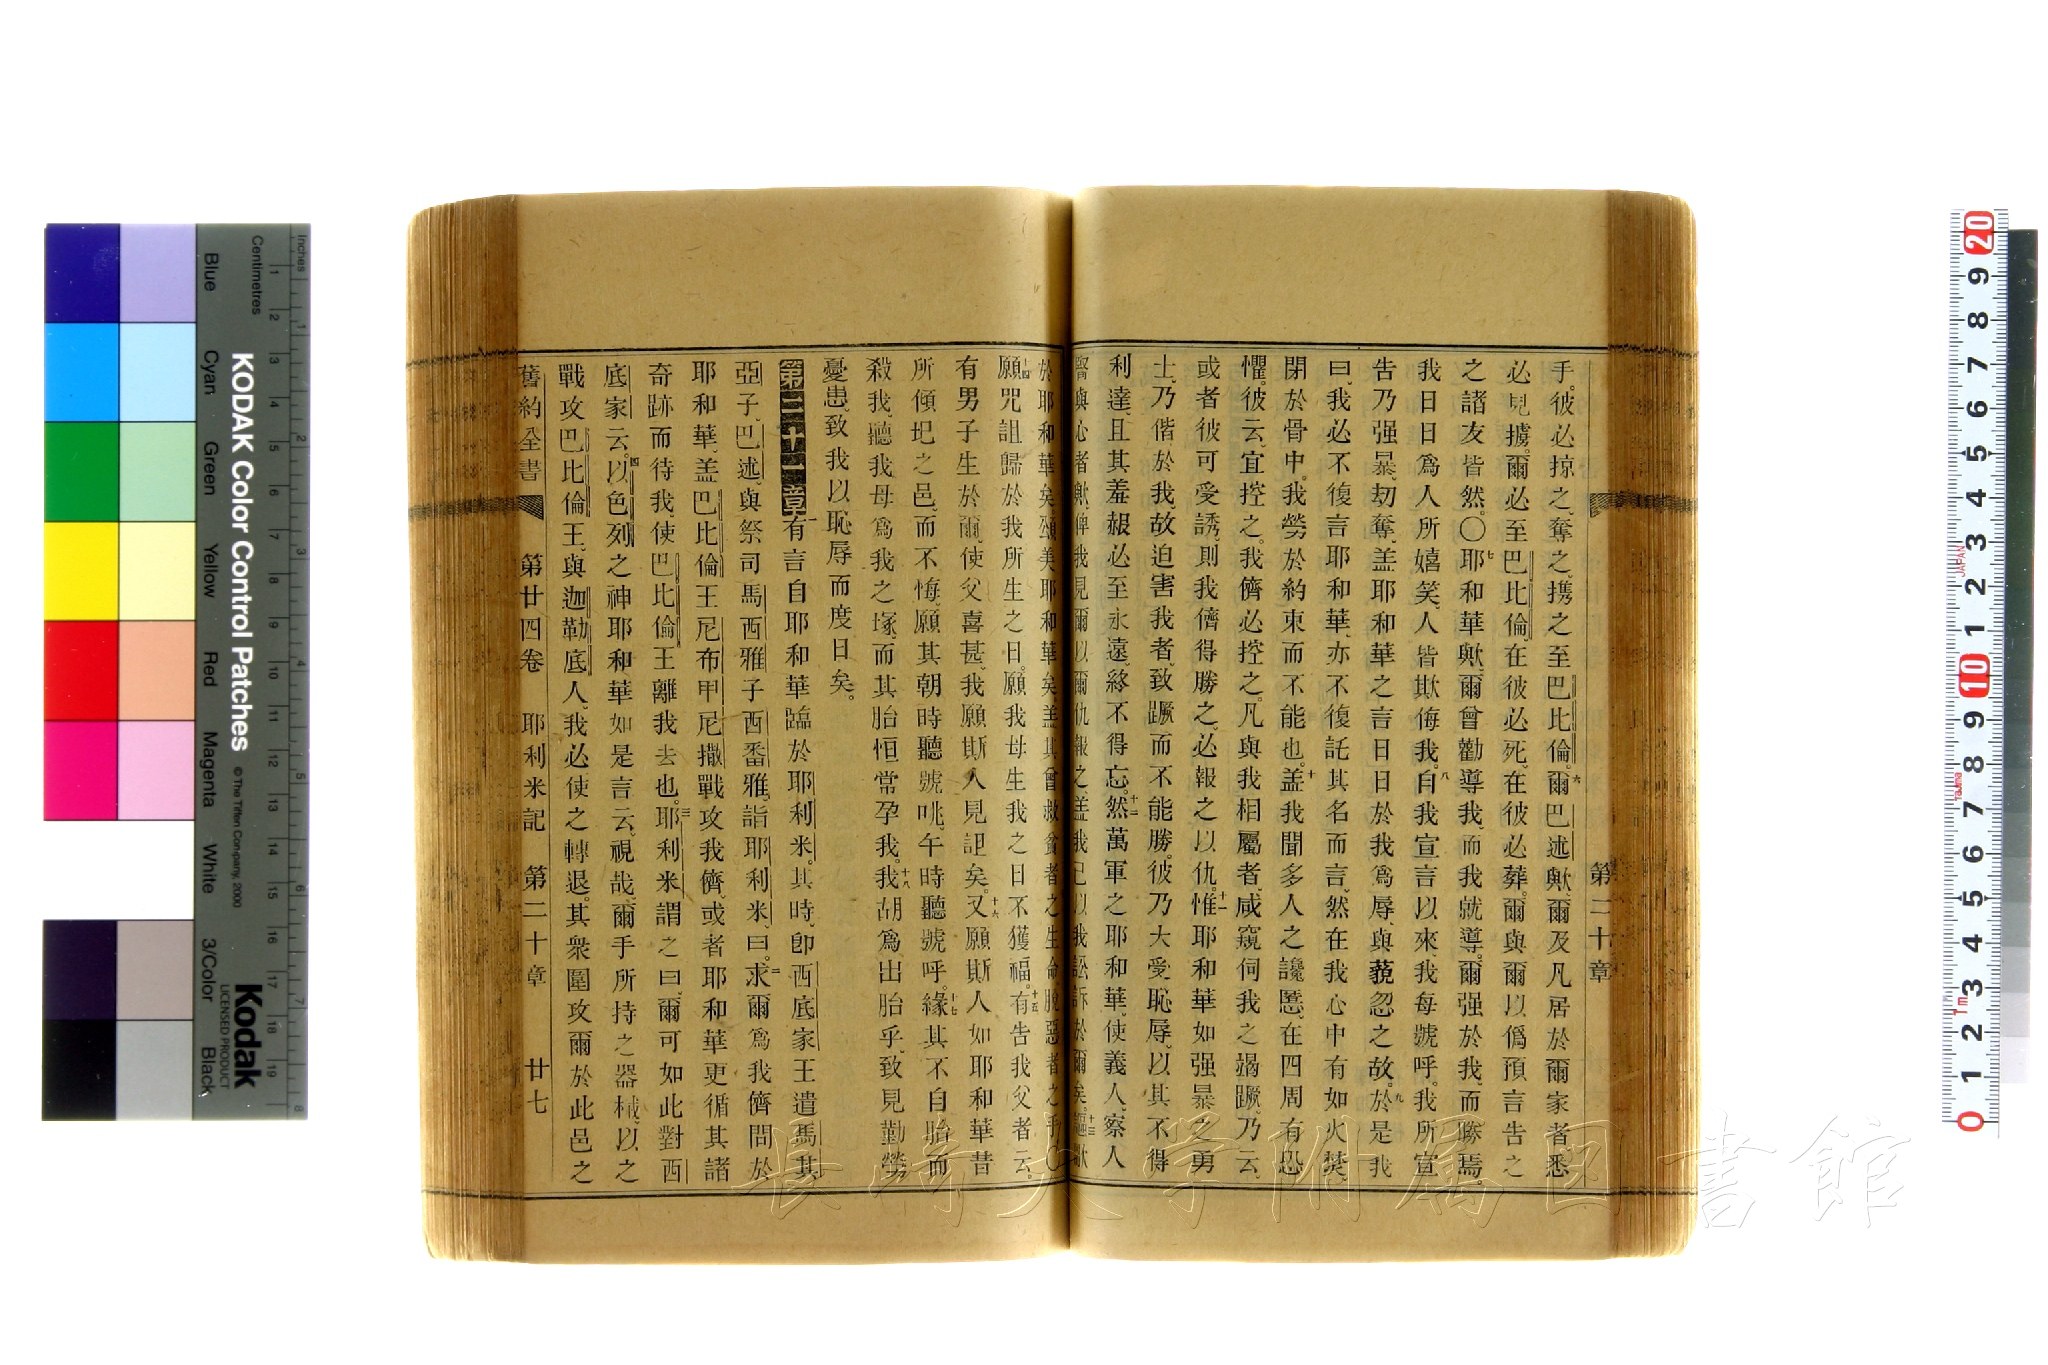 第二十章
手。彼必掠之、奪之、携之至巴比倫。六爾巴述歟、爾及凡居於爾家者悉
必見擄。爾必至巴比倫、在彼必死、在彼必葬。爾與爾以僞預言告之
之諸友皆然。〇七耶和華歟、爾曾勸導我、而我就導。爾强於我、而勝焉。
我日日爲人所嬉笑、人皆欺侮我。八自我宣言以來、我每號呼。我所宣
告乃强暴、刧奪、盖耶和華之言日日於我爲辱、與藐忽之故。九於是我
曰、我必不復言耶和華、亦不復託其名而言、然在我心中有如火焚、
閉於骨中。我勞於約束而不能也。十盖我聞多人之讒慝、在四周有恐
懼。彼云、宜控之。我儕必控之。凡與我相屬者、咸窺伺我之竭蹶。乃云、
或者彼可受誘、則我儕得勝之、必報之以仇。十一惟耶和華如强暴之勇
士、乃偕於我、故迫害我者、致蹶而不能勝。彼乃大受恥辱、以其不得
利達、且其羞赧必至永遠、終不得忘。十二然萬軍之耶和華、使義人、察人
腎與心者歟、俾我見爾以爾仇報之、盖我已以我訟訴於爾矣。十三謳歌
於耶和華矣、頌美耶和華矣、盖其曾救貧者之生命脫惡者之手。〇
十四願咒詛歸於我所生之日。願我母生我之日不獲福。十五有告我父者云。
有男子生於爾、使父喜甚、我願斯人見詛矣。十六又願斯人如耶和華昔
所傾圮之邑、而不悔、願其朝時聽號咷、午時聽號呼。十七緣其不自胎而
殺我、聽我母爲我之塚、而其胎恒常孕我。十八我胡爲出胎乎、致見勤勞
憂患、致我以恥辱而度日矣。
第二十一章一有言自耶和華臨於耶利米。其時、卽西底家王遣馬其
亞子、巴述、與祭司馬西雅子西番雅、詣耶利米、曰。二求爾爲我儕問於
耶和華、盖巴比倫王尼布甲尼撒戰攻我儕、或者耶和華更循其諸
奇跡而待我、使巴比倫王離我去也。三耶利米謂之曰、爾可如此對西
底家云。四以色列之神耶和華如是言云、視哉、爾手所持之器械、以之
戰攻巴比倫王、與迦勒底人、我必使之轉退。其衆圍攻爾於此邑之
舊約全書 第廿四卷 耶利米記 第二十章 廿七
長崎大学附属図書館
KODAK Color Control Patches
© The Tiffen Company, 2000
Kodak
LICENSED PRODUCT
Inches
Centimetres
Blue
Cyan
Green
Yellow
Red
Magenta
White
3/Color
Black
1 2 3 4 5 6 7 8 9 10 11 12 13 14 15 16 17 18 19
1 2 3 4 5 6 7 8
20 9 8 7 6 5 4 3 2 1 10 9 8 7 6 5 4 3 2 1 0
JAPAN